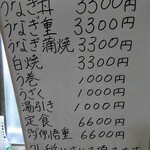 うなぎ丼 3300円
うなぎ重 3300円
うなぎ蒲焼 3300円
白焼 3300円
う巻 1000円
うざく 1000円
湯引き 1000円
定食 6600円
うなぎ倍重 6600円